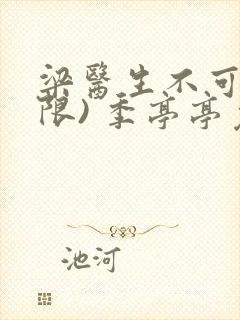 梁醫生不可
限) 季亭亭
池河